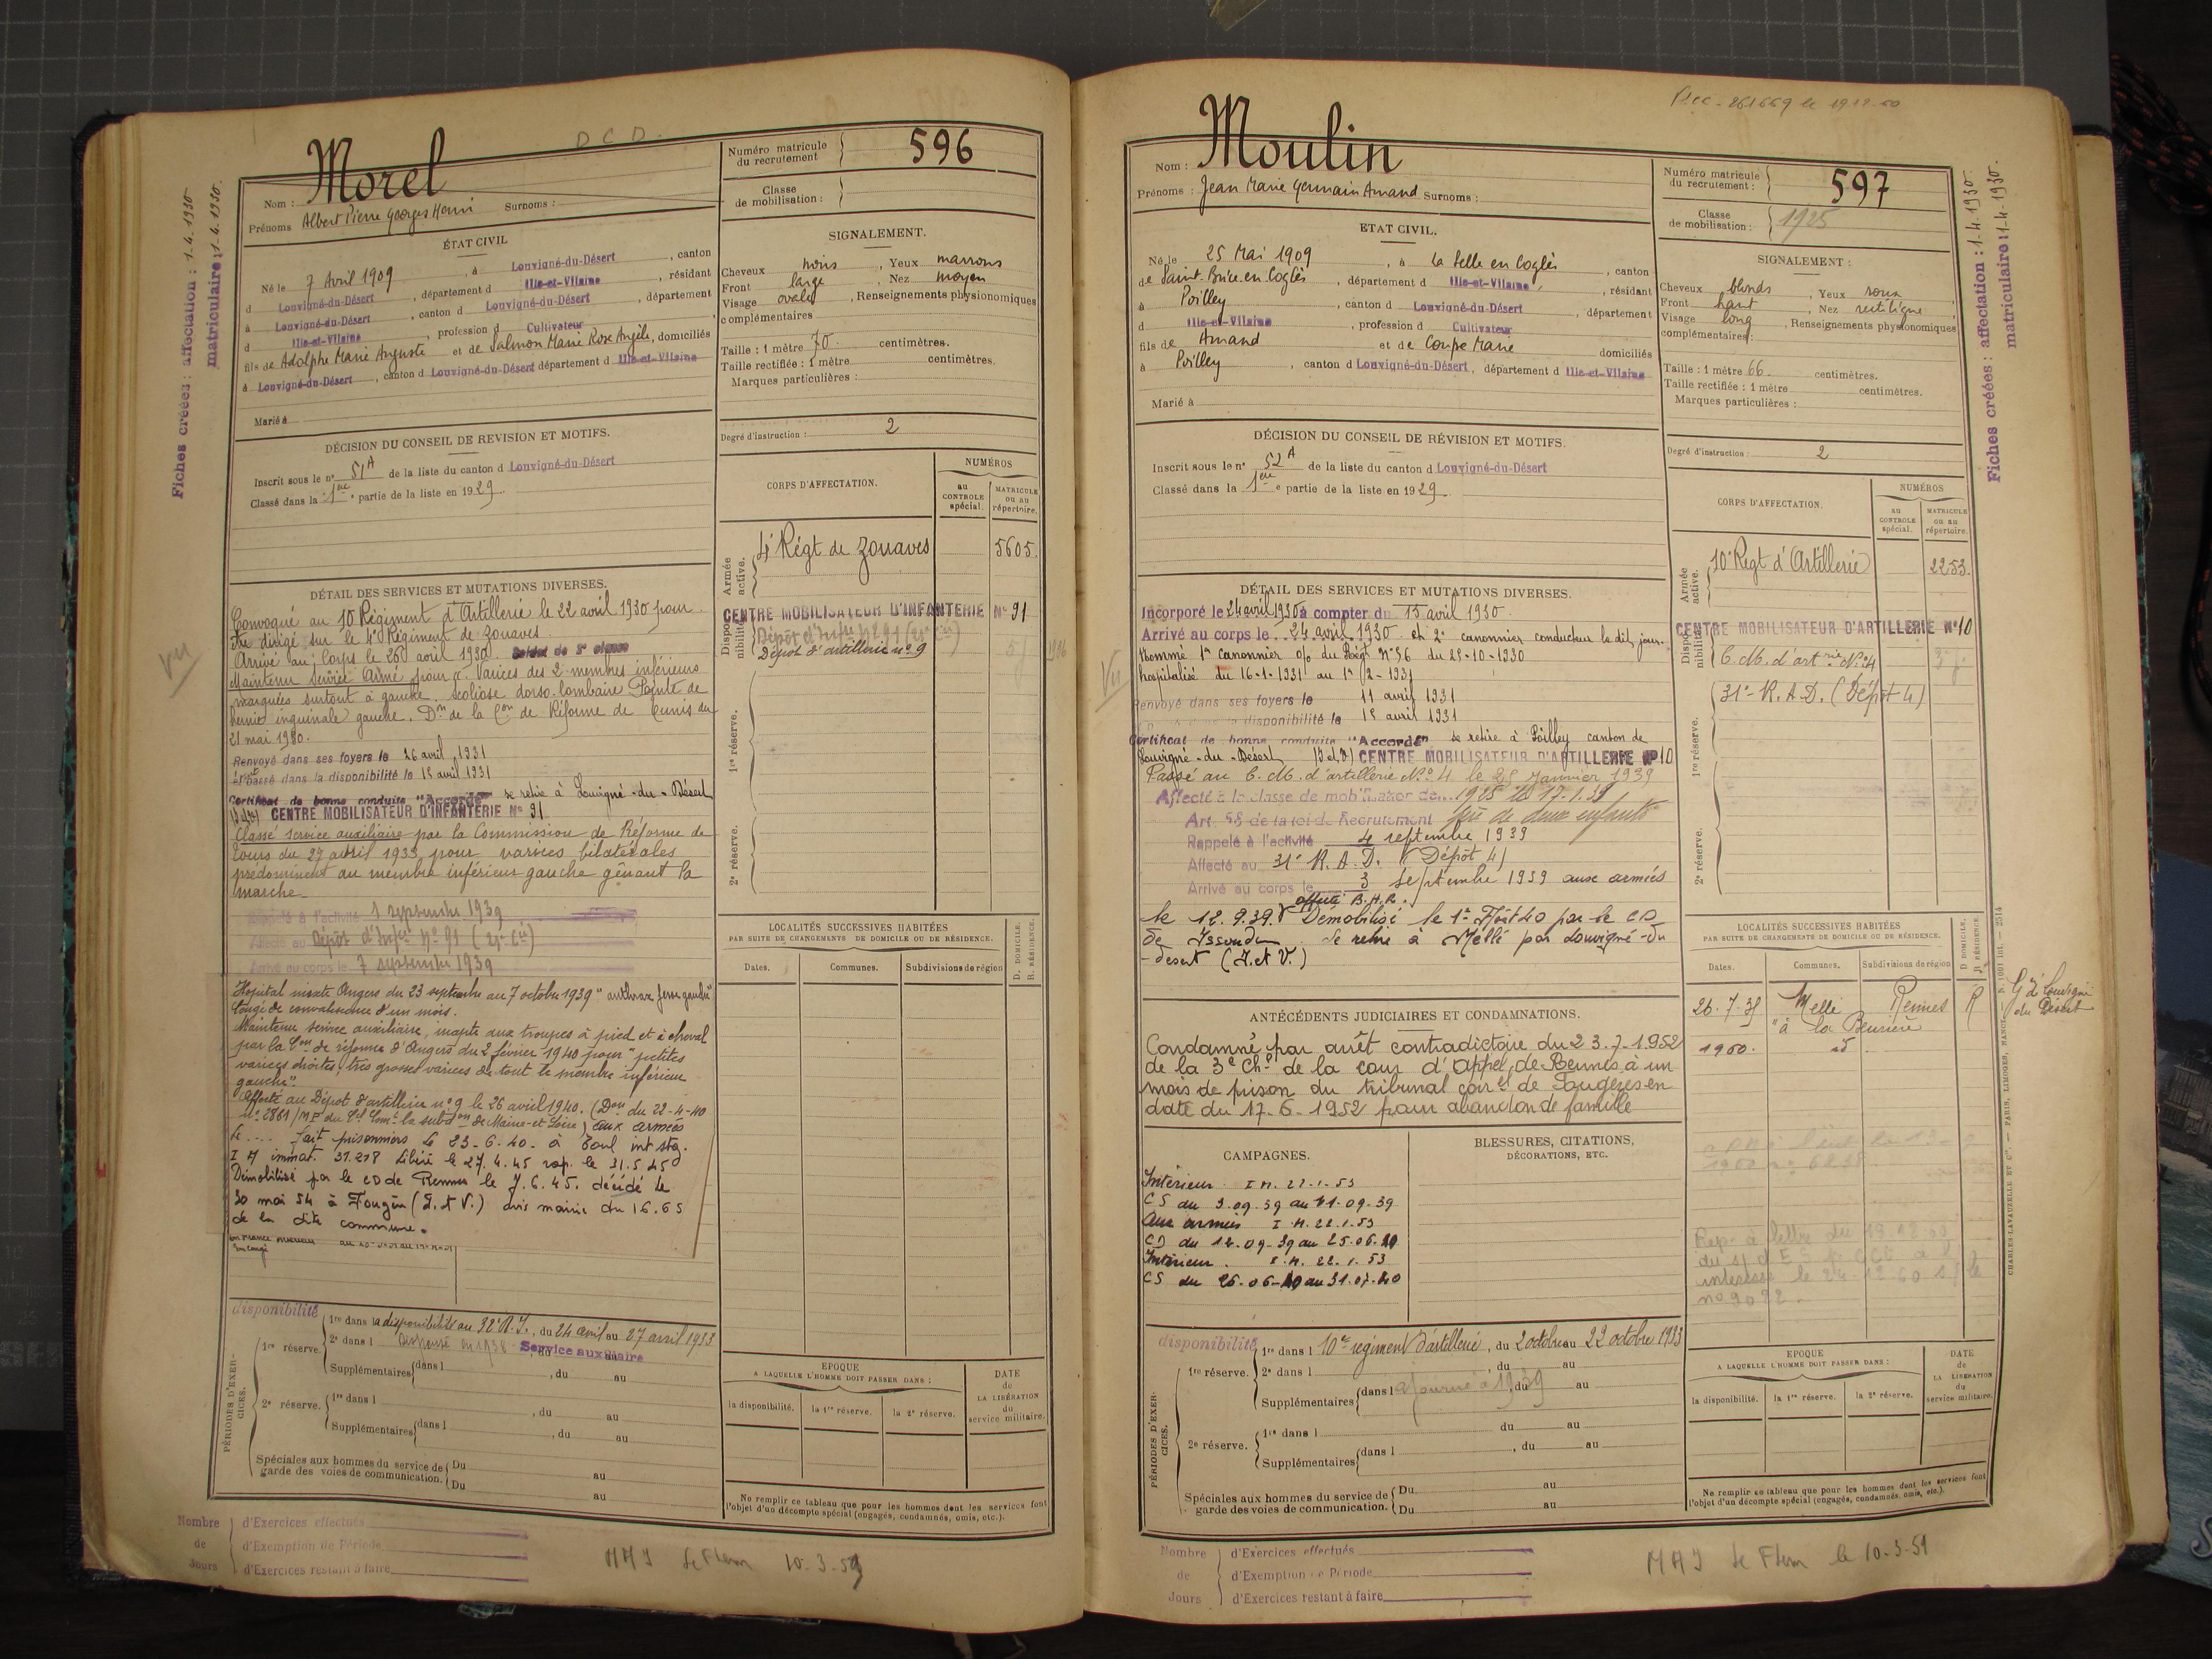 D C D.
Fiches créées : affectation : 1.4.1930
matriculaire : 1.4.1930.
Nom : Morel
Prénoms Albert Pierre Georges Henri Surnoms :
Numéro matricule du recrutement 596
Classe de mobilisation :
ÉTAT CIVIL
Né le 7 Avril 1909, à Louvigné-du-Désert, canton
d Louvigné-du-Désert, département d Ille-et-Vilaine, résidant
à Louvigné-du-Désert, canton d Louvigné-du-Désert, département
d Ille-et-Vilaine, profession d Cultivateur
fils de Adolphe Marie Auguste et de Salmon Marie Rose Angèle, domiciliés
à Louvigné-du-Désert, canton d Louvigné-du-Désert département d Ille-et-Vilaine
Marié à
SIGNALEMENT.
Cheveux noirs, Yeux marrons
Front large, Nez moyen
Visage ovale, Renseignements physionomiques
complémentaires
Taille : 1 mètre 70 centimètres.
Taille rectifiée : 1 mètre centimètres.
Marques particulières :
Degré d'instruction : 2
DÉCISION DU CONSEIL DE REVISION ET MOTIFS.
Inscrit sous le n° 51A de la liste du canton d Louvigné-du-Désert
Classé dans la 1ère partie de la liste en 1929.
CORPS D'AFFECTATION.
NUMÉROS
au CONTROLE spécial.
MATRICULE ou au répertoire.
Armée active.
4e Régt de Zouaves 5605.
Disponibilité
CENTRE MOBILISATEUR D'INFANTERIE N° 91
Dépôt d'Infrie N° 91
Dépôt d'artillerie n° 9
1re réserve.
2e réserve.
DÉTAIL DES SERVICES ET MUTATIONS DIVERSES.
vu
Convoqué au 10 Régiment d'Artillerie le 22 avril 1930 pour
être dirigé sur le 4e Régiment de Zouaves.
Arrivé au Corps le 26 avril 1930. Soldat de 2e classe
Maintenu Service Armé pour Varices des 2 membres inférieurs
marquées surtout à gauche. Scoliose dorso-lombaire Pointe de
hernie inguinale gauche. Don de la Con de Réforme de Tunis du
21 mai 1930.
Renvoyé dans ses foyers le 16 avril 1931
et passé dans la disponibilité le 15 avril 1931
Certificat de bonne conduite "Accordé" se retire à Louvigné-du-Désert
CENTRE MOBILISATEUR D'INFANTERIE N° 91
Classé service auxiliaire par la Commission de Réforme de
Tours du 27 avril 1933 pour varices bilatérales
prédominant au membre inférieur gauche gênant la
marche.
Rappelé à l'activité 1 septembre 1939
Affecté au Dépôt d'Infrie N° 91
Arrivé au corps le 7 septembre 1939
Hopital mixte Angers du 23 septembre au 7 octobre 1939 "anthrax fesse gauche"
Congé de convalescence d'un mois.
Maintenu service auxiliaire, inapte aux troupes à pied et à cheval
par la Con de réforme d'Angers du 2 février 1940 pour "petites
varices droites, très grosses varices de tout le membre inférieur
gauche".
Affecté au Dépôt d'artillerie n° 9 le 26 avril 1940. (Don du 22-4-40
n° 2861/ME du Cel Comt la subdon de Maine-et-Loire) aux armées
le .... fait prisonnier le 23-6-40 à Toul int stg.
I immat. 31.218 Libéré le 27.4.45 rap. le 31.5.45
Démobilisé par le CD de Rennes le 7.6.45. décédé le
30 mai 54 à Fougères (I. et V.) avis mairie du 16.6.5
de la dite commune.
LOCALITÉS SUCCESSIVES HABITÉES
PAR SUITE DE CHANGEMENTS DE DOMICILE OU DE RÉSIDENCE.
Dates. Communes. Subdivisions de région
D. DOMICILE. R. RÉSIDENCE.
PÉRIODES D'EXERCICES.
disponibilité
1re réserve. 1re dans la disponibilité au 32e R.I., du 24 avril au 27 avril 1933
2e dans l dispensé en 1938 Service auxiliaire
Supplémentaires dans l, du au
2e réserve. 1re dans l, du au
Supplémentaires dans l, du au
Spéciales aux hommes du service de garde des voies de communication. Du au
Du au
EPOQUE
A LAQUELLE L'HOMME DOIT PASSER DANS :
la disponibilité. la 1re réserve. la 2e réserve.
DATE de LA LIBÉRATION du service militaire.
Ne remplir ce tableau que pour les hommes dont les services font
l'objet d'un décompte spécial (engagés, condamnés, omis, etc.).
Nombre de Jours
d'Exercices effectués
d'Exemption de Période
d'Exercices restant à faire
10-3-59
Fiches créées : affectation : 1.4.1930.
matriculaire : 1-4-1930.
Nom : Moulin
Prénoms : Jean Marie Germain Amand Surnoms :
Numéro matricule du recrutement : 597
Classe de mobilisation : 1925
ETAT CIVIL.
Né le 25 Mai 1909, à La Selle en Coglès, canton
de Saint-Brice en Coglès, département d Ille-et-Vilaine, résidant
à Poilley, canton d Louvigné-du-Désert, département
d Ille-et-Vilaine, profession d Cultivateur
fils de Amand et de Coupé Marie domiciliés
à Poilley, canton d Louvigné-du-Désert, département d Ille-et-Vilaine
Marié à
SIGNALEMENT :
Cheveux blonds, Yeux roux
Front haut, Nez rectiligne
Visage long, Renseignements physionomiques
complémentaires :
Taille : 1 mètre 66 centimètres.
Taille rectifiée : 1 mètre centimètres.
Marques particulières :
Degré d'instruction : 2
DÉCISION DU CONSEIL DE RÉVISION ET MOTIFS.
Inscrit sous le n° 52A de la liste du canton d Louvigné-du-Désert
Classé dans la 1ère partie de la liste en 1929.
CORPS D'AFFECTATION.
NUMÉROS
au CONTROLE spécial.
MATRICULE ou au répertoire.
Armée active.
10e Regt d'Artillerie 2253.
Disponibilité
CENTRE MOBILISATEUR D'ARTILLERIE N° 10
C.M. d'artrie N° 4
31e R.A.D. (Dépôt 4)
1re réserve.
2e réserve.
DÉTAIL DES SERVICES ET MUTATIONS DIVERSES.
Vu
Incorporé le 24 avril 1930 à compter du 15 avril 1930.
Arrivé au corps le 24 avril 1930 et 2e canonnier conducteur le dit jour.
Nommé 1er canonnier O/ du Régt N° 56 du 25-10-1930
hospitalisé du 16-1-1931 au 1er-2-1931
Renvoyé dans ses foyers le 11 avril 1931
disponibilité le 15 avril 1931
Certificat de bonne conduite "Accordé" se retire à Poilley canton de
Louvigné-du-Désert (I.et.V) CENTRE MOBILISATEUR D'ARTILLERIE N° 10
Passé au C.M. d'artillerie N° 4 le 25 Janvier 1939
Affecté à la classe de mobilisation de 1925 le 17.1.39
Art. 58 de la loi de Recrutement père de deux enfants
Rappelé à l'activité 4 septembre 1939
Affecté au 31e R.A.D. (Dépôt 4)
Arrivé au corps le 3 septembre 1939 aux armées
affecté B.H.R.
le 12.9.39. Démobilisé le 1er Août 40 par le CD
de Issoudun. Se retire à Mellé par Louvigné-du
-désert (I. et V.)
ANTÉCÉDENTS JUDICIAIRES ET CONDAMNATIONS.
Condamné par arrêt contradictoire du 23.7.1952
de la 3e Ch. de la cour d'Appel de Rennes à un
mois de prison du tribunal corel de Fougères en
date du 17-6-1952 pour abandon de famille
CAMPAGNES.
Intérieur I.M. 22.1.53
CS du 3.09.39 au 11.09.39
Aux armées I.M. 22.1.53
CD du 12.09.39 au 25.06.40
Intérieur. I.M. 22.1.53
CS du 26.06.40 au 31.07.40
BLESSURES, CITATIONS,
DÉCORATIONS, ETC.
LOCALITÉS SUCCESSIVES HABITÉES
PAR SUITE DE CHANGEMENTS DE DOMICILE OU DE RÉSIDENCE.
Dates. Communes. Subdivisions de région
D. DOMICILE. R. RÉSIDENCE.
26.7.35 Mellé Rennes R Gie Louvigné du Désert
1960. id
Rep. à lettre du
intéressé le 24.12.60
PÉRIODES D'EXERCICES.
disponibilité
1re réserve. 1re dans l 10e régiment d'artillerie, du 2 octobre au 22 octobre 1933
2e dans l, du au
Supplémentaires dans l ajourné à 1939, du au
2e réserve. 1re dans l du au
Supplémentaires dans l, du au
Spéciales aux hommes du service de garde des voies de communication. Du au
Du au
EPOQUE
A LAQUELLE L'HOMME DOIT PASSER DANS :
la disponibilité. la 1re réserve. la 2e réserve.
DATE de LA LIBÉRATION du service militaire.
Ne remplir ce tableau que pour les hommes dont les services font
l'objet d'un décompte spécial (engagés, condamnés, omis, etc.).
CHARLES-LAVAUZELLE ET Cie. — PARIS, LIMOGES, NANCY
Nombre de Jours
d'Exercices effectués
d'Exemption de Période
d'Exercices restant à faire
le 10-3-59